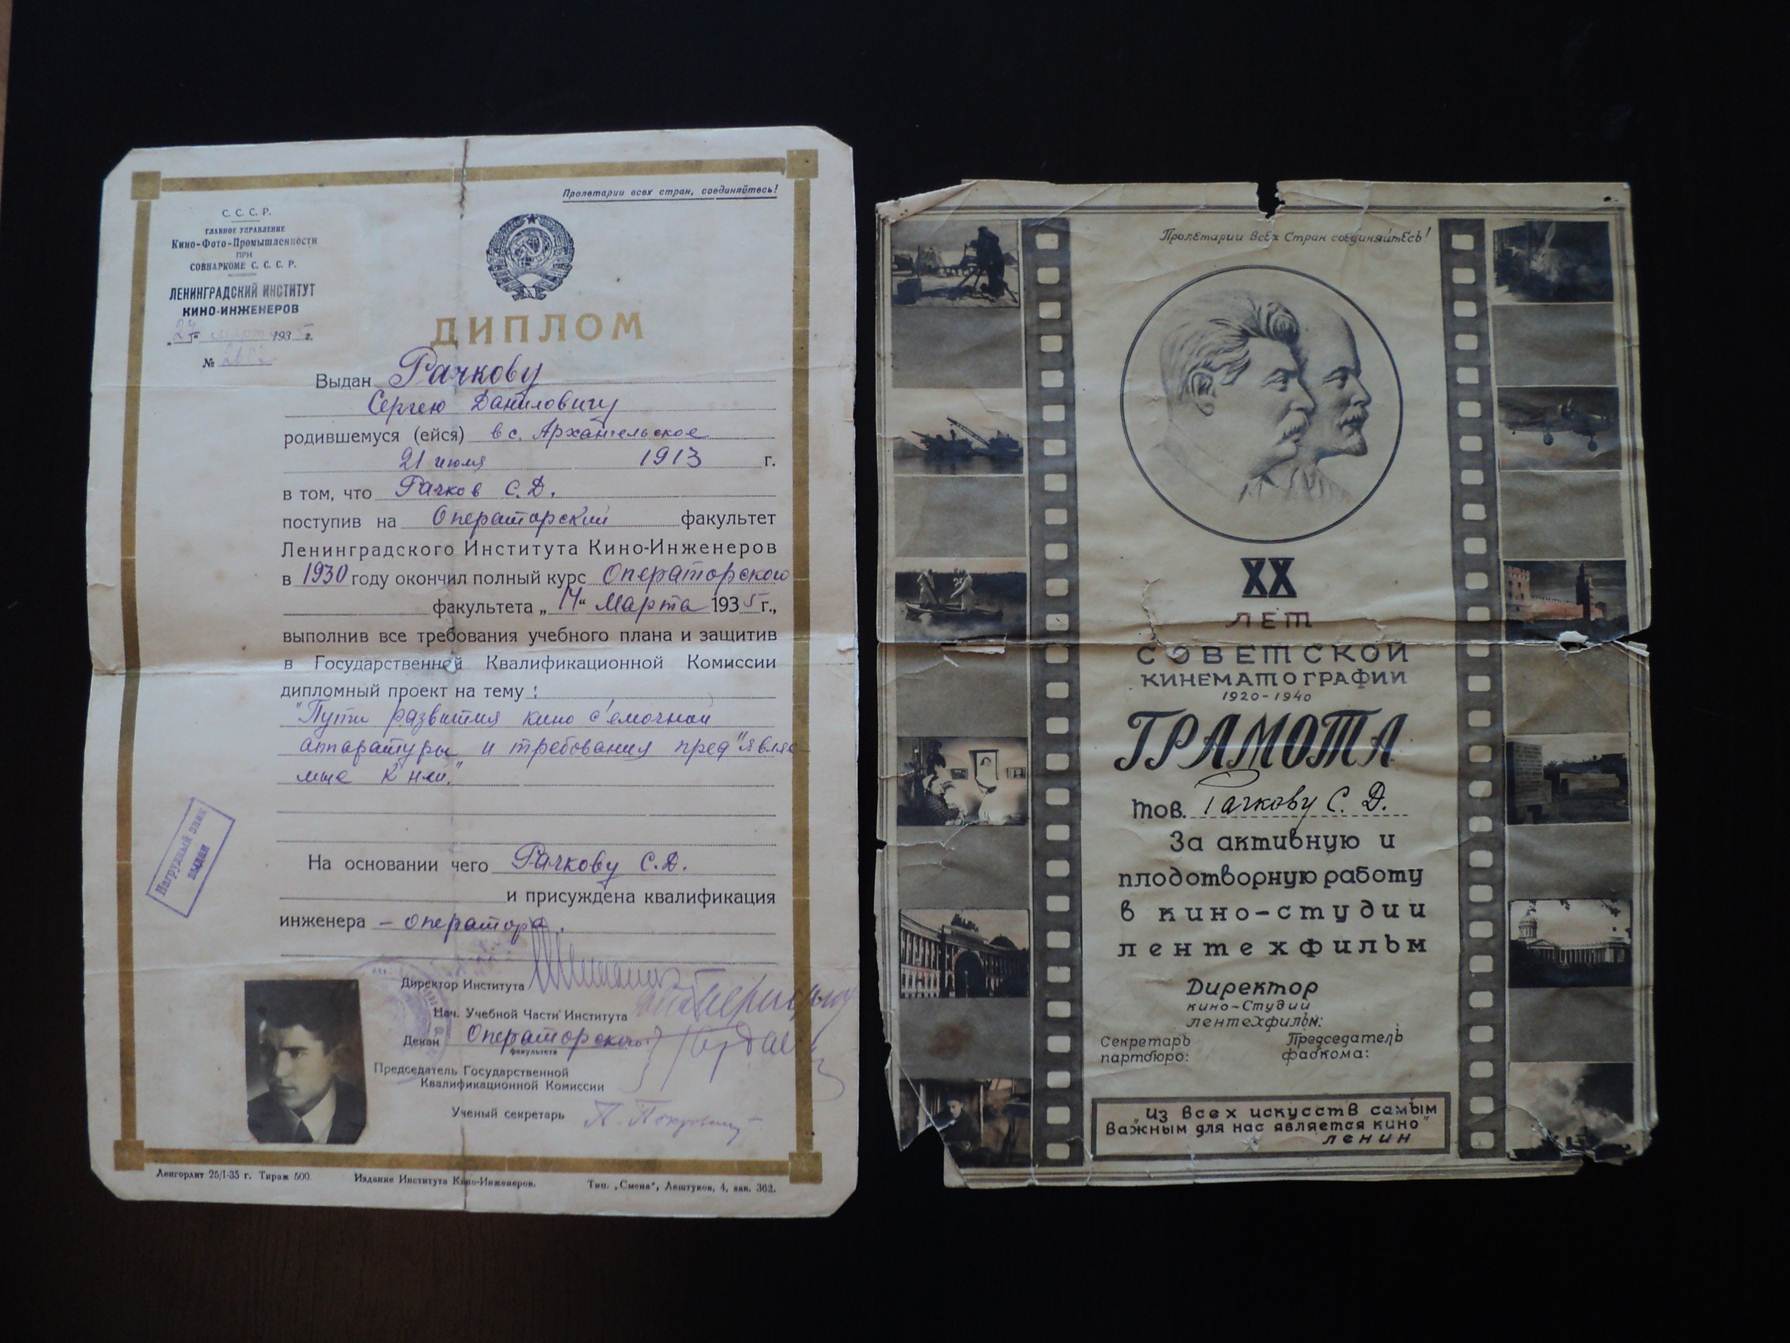 Пролетарии всех стран, соединяйтесь!
С. С. С. Р.
ГЛАВНОЕ УПРАВЛЕНИЕ
Кино-Фото-Промышленности
ПРИ
СОВНАРКОМЕ С. С. С. Р.
ЛЕНИНГРАДСКИЙ ИНСТИТУТ
КИНО-ИНЖЕНЕРОВ
марта 1935 г.
№
ДИПЛОМ
Выдан Рачкову
Сергею Даниловичу
родившемуся (ейся) в с. Архангельское
21 июля 1913 г.
в том, что Рачков С. Д.
поступив на Операторский факультет
Ленинградского Института Кино-Инженеров
в 1930 году окончил полный курс Операторского
факультета „17“ Марта 1935 г.,
выполнив все требования учебного плана и защитив
в Государственной Квалификационной Комиссии
дипломный проект на тему:
"Пути развития кино с'емочной
аппаратуры и требования пред"являе-
мые к ней."
Нагрудный знак
выдан
На основании чего Рачкову С. Д.
и присуждена квалификация
инженера - оператора.
Директор Института
Нач. Учебной Части Института
Декан Операторского
факультета
Председатель Государственной
Квалификационной Комиссии
Ученый секретарь
Ленгорлит 26/I-35 г. Тираж 500. Издание Института Кино-Инженеров. Тип. „Смена“, Лештуков, 4, зак. 362.
Пролетарии Всех Стран соединяйтесь!
XX
ЛЕТ
СОВЕТСКОЙ
КИНЕМАТОГРАФИИ
1920-1940
ГРАМОТА
Тов. Рачкову С. Д.
За активную и
плодотворную работу
в кино-студии
лентехфильм
Директор
кино-студии
лентехфильм:
Секретарь
партбюро:
Председатель
фабкома:
"Из всех искусств самым
важным для нас является кино"
ЛЕНИН